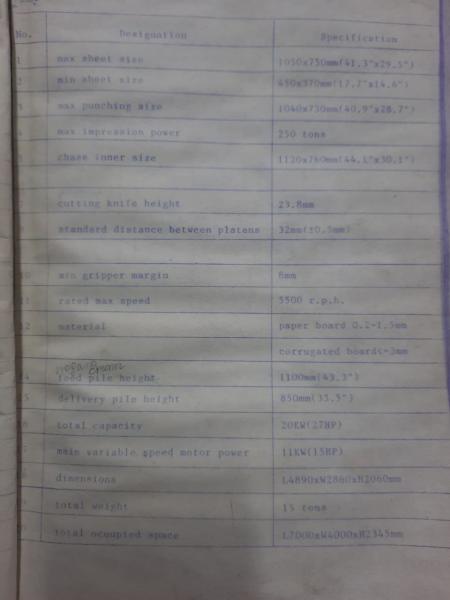 No. Designation Specification
1 max sheet size 1050x750mm(41.3"x29.5")
2 min sheet size 450x370mm(17.7"x14.6")
3 max punching size 1040x730mm(40.9"x28.7")
4 max impression power 250 tons
5 chase inner size 1120x760mm(44.1"x30.1")
7 cutting knife height 23.8mm
8 standard distance between platens 32mm(±0.5mm)
10 min gripper margin 8mm
11 rated max speed 5500 r.p.h.
12 material paper board 0.2-1.5mm
corrugated board<=3mm
14 feed pile height 1100mm(43.3")
15 delivery pile height 850mm(33.5")
16 total capacity 20KW(27HP)
17 main variable speed motor power 11KW(15HP)
18 dimensions L4890xW2860xH2060mm
19 total weight 15 tons
20 total occupied space L7000xW4000xH2345mm